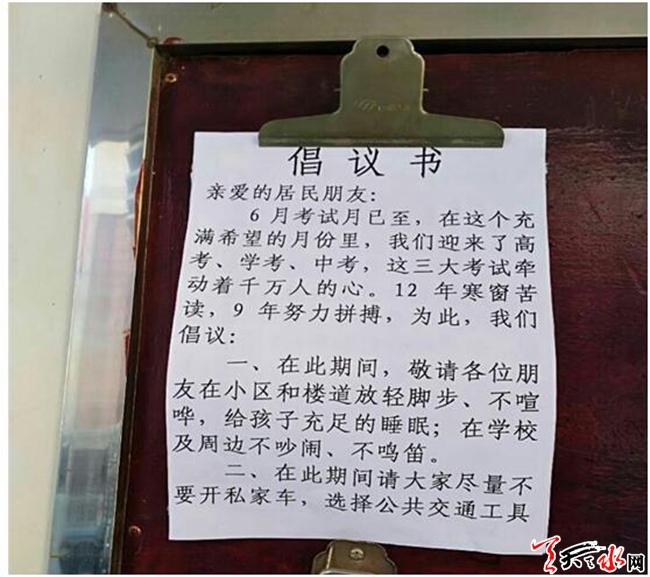 倡议书
亲爱的居民朋友：
6月考试月已至，在这个充
满希望的月份里，我们迎来了高
考、学考、中考，这三大考试牵
动着千万人的心。12年寒窗苦
读，9年努力拼搏，为此，我们
倡议：
一、在此期间，敬请各位朋
友在小区和楼道放轻脚步、不喧
哗，给孩子充足的睡眠；在学校
及周边不吵闹、不鸣笛。
二、在此期间请大家尽量不
要开私家车，选择公共交通工具
天天水网